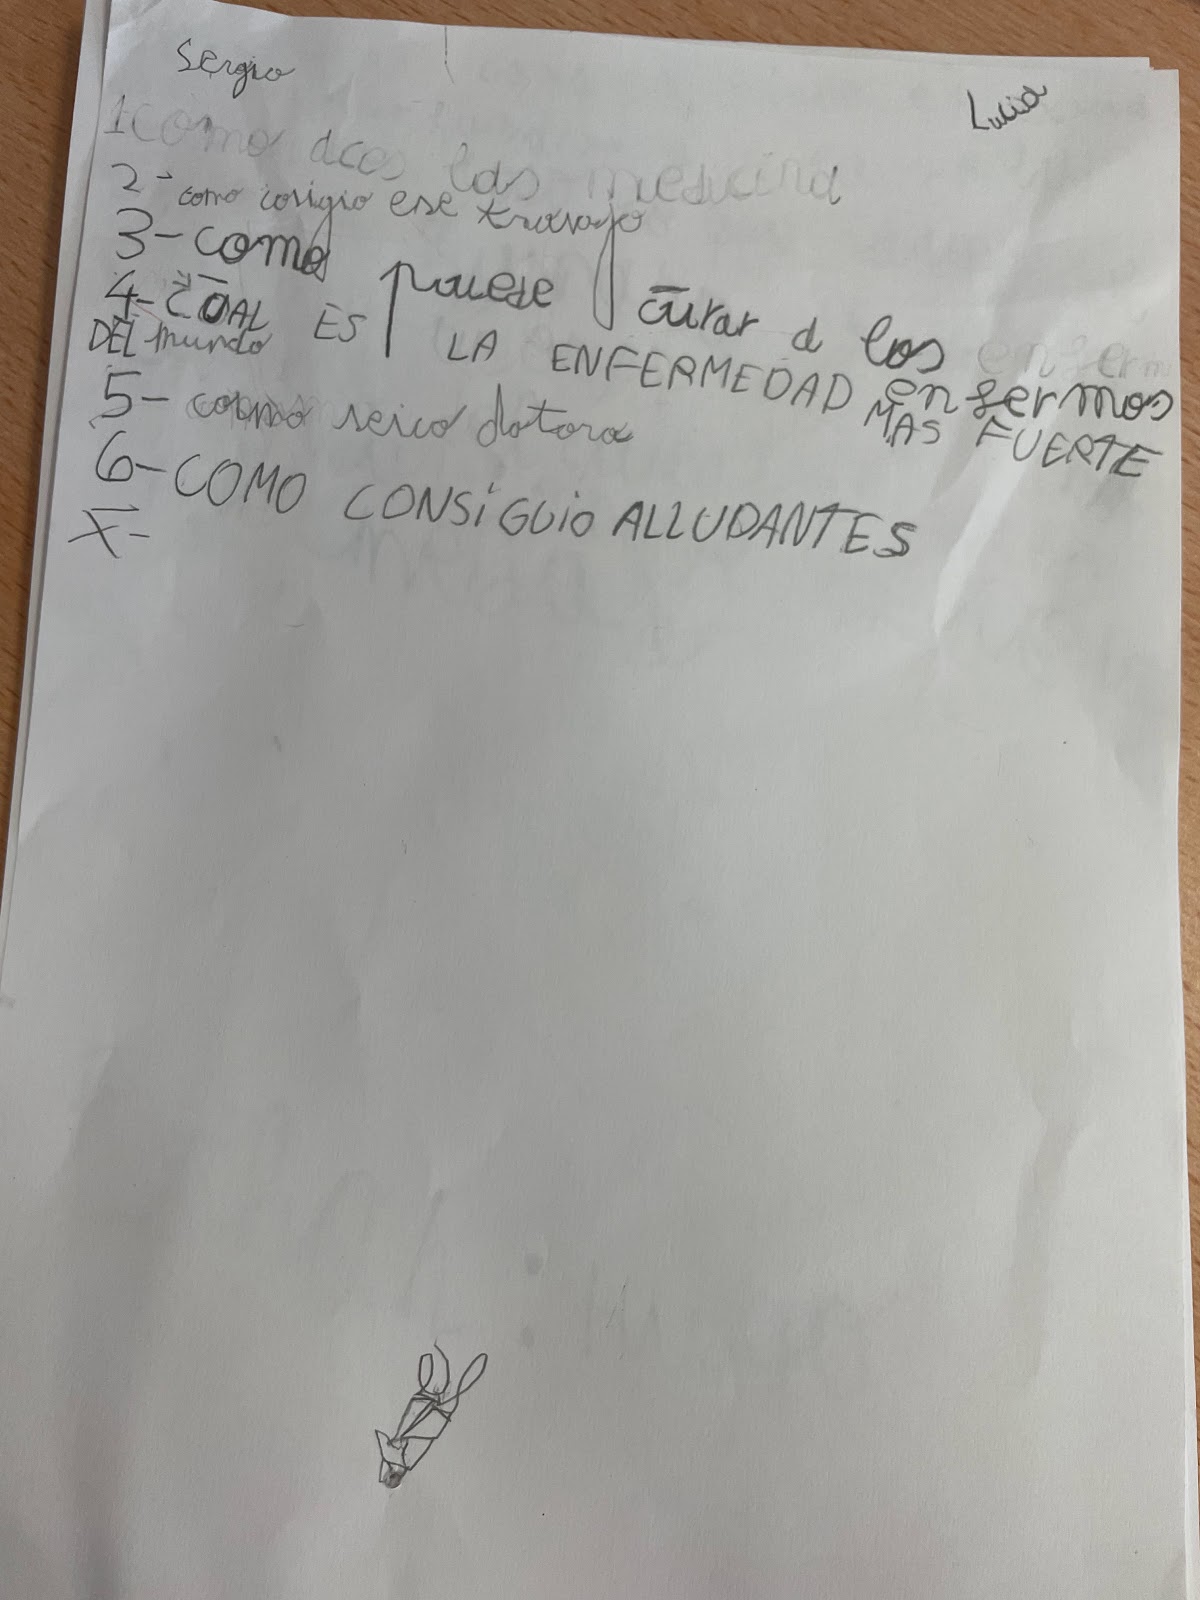 Sergio
Lucia
1 Como dces las medicina
2- como cosigio ese travajo
3- como puese curar a los enfermos
4- CUAL ES LA ENFERMEDAD MAS FUERTE
DEL mundo
5- como seico dotora
6- COMO CONSiGUiO ALLUDANTES
7-